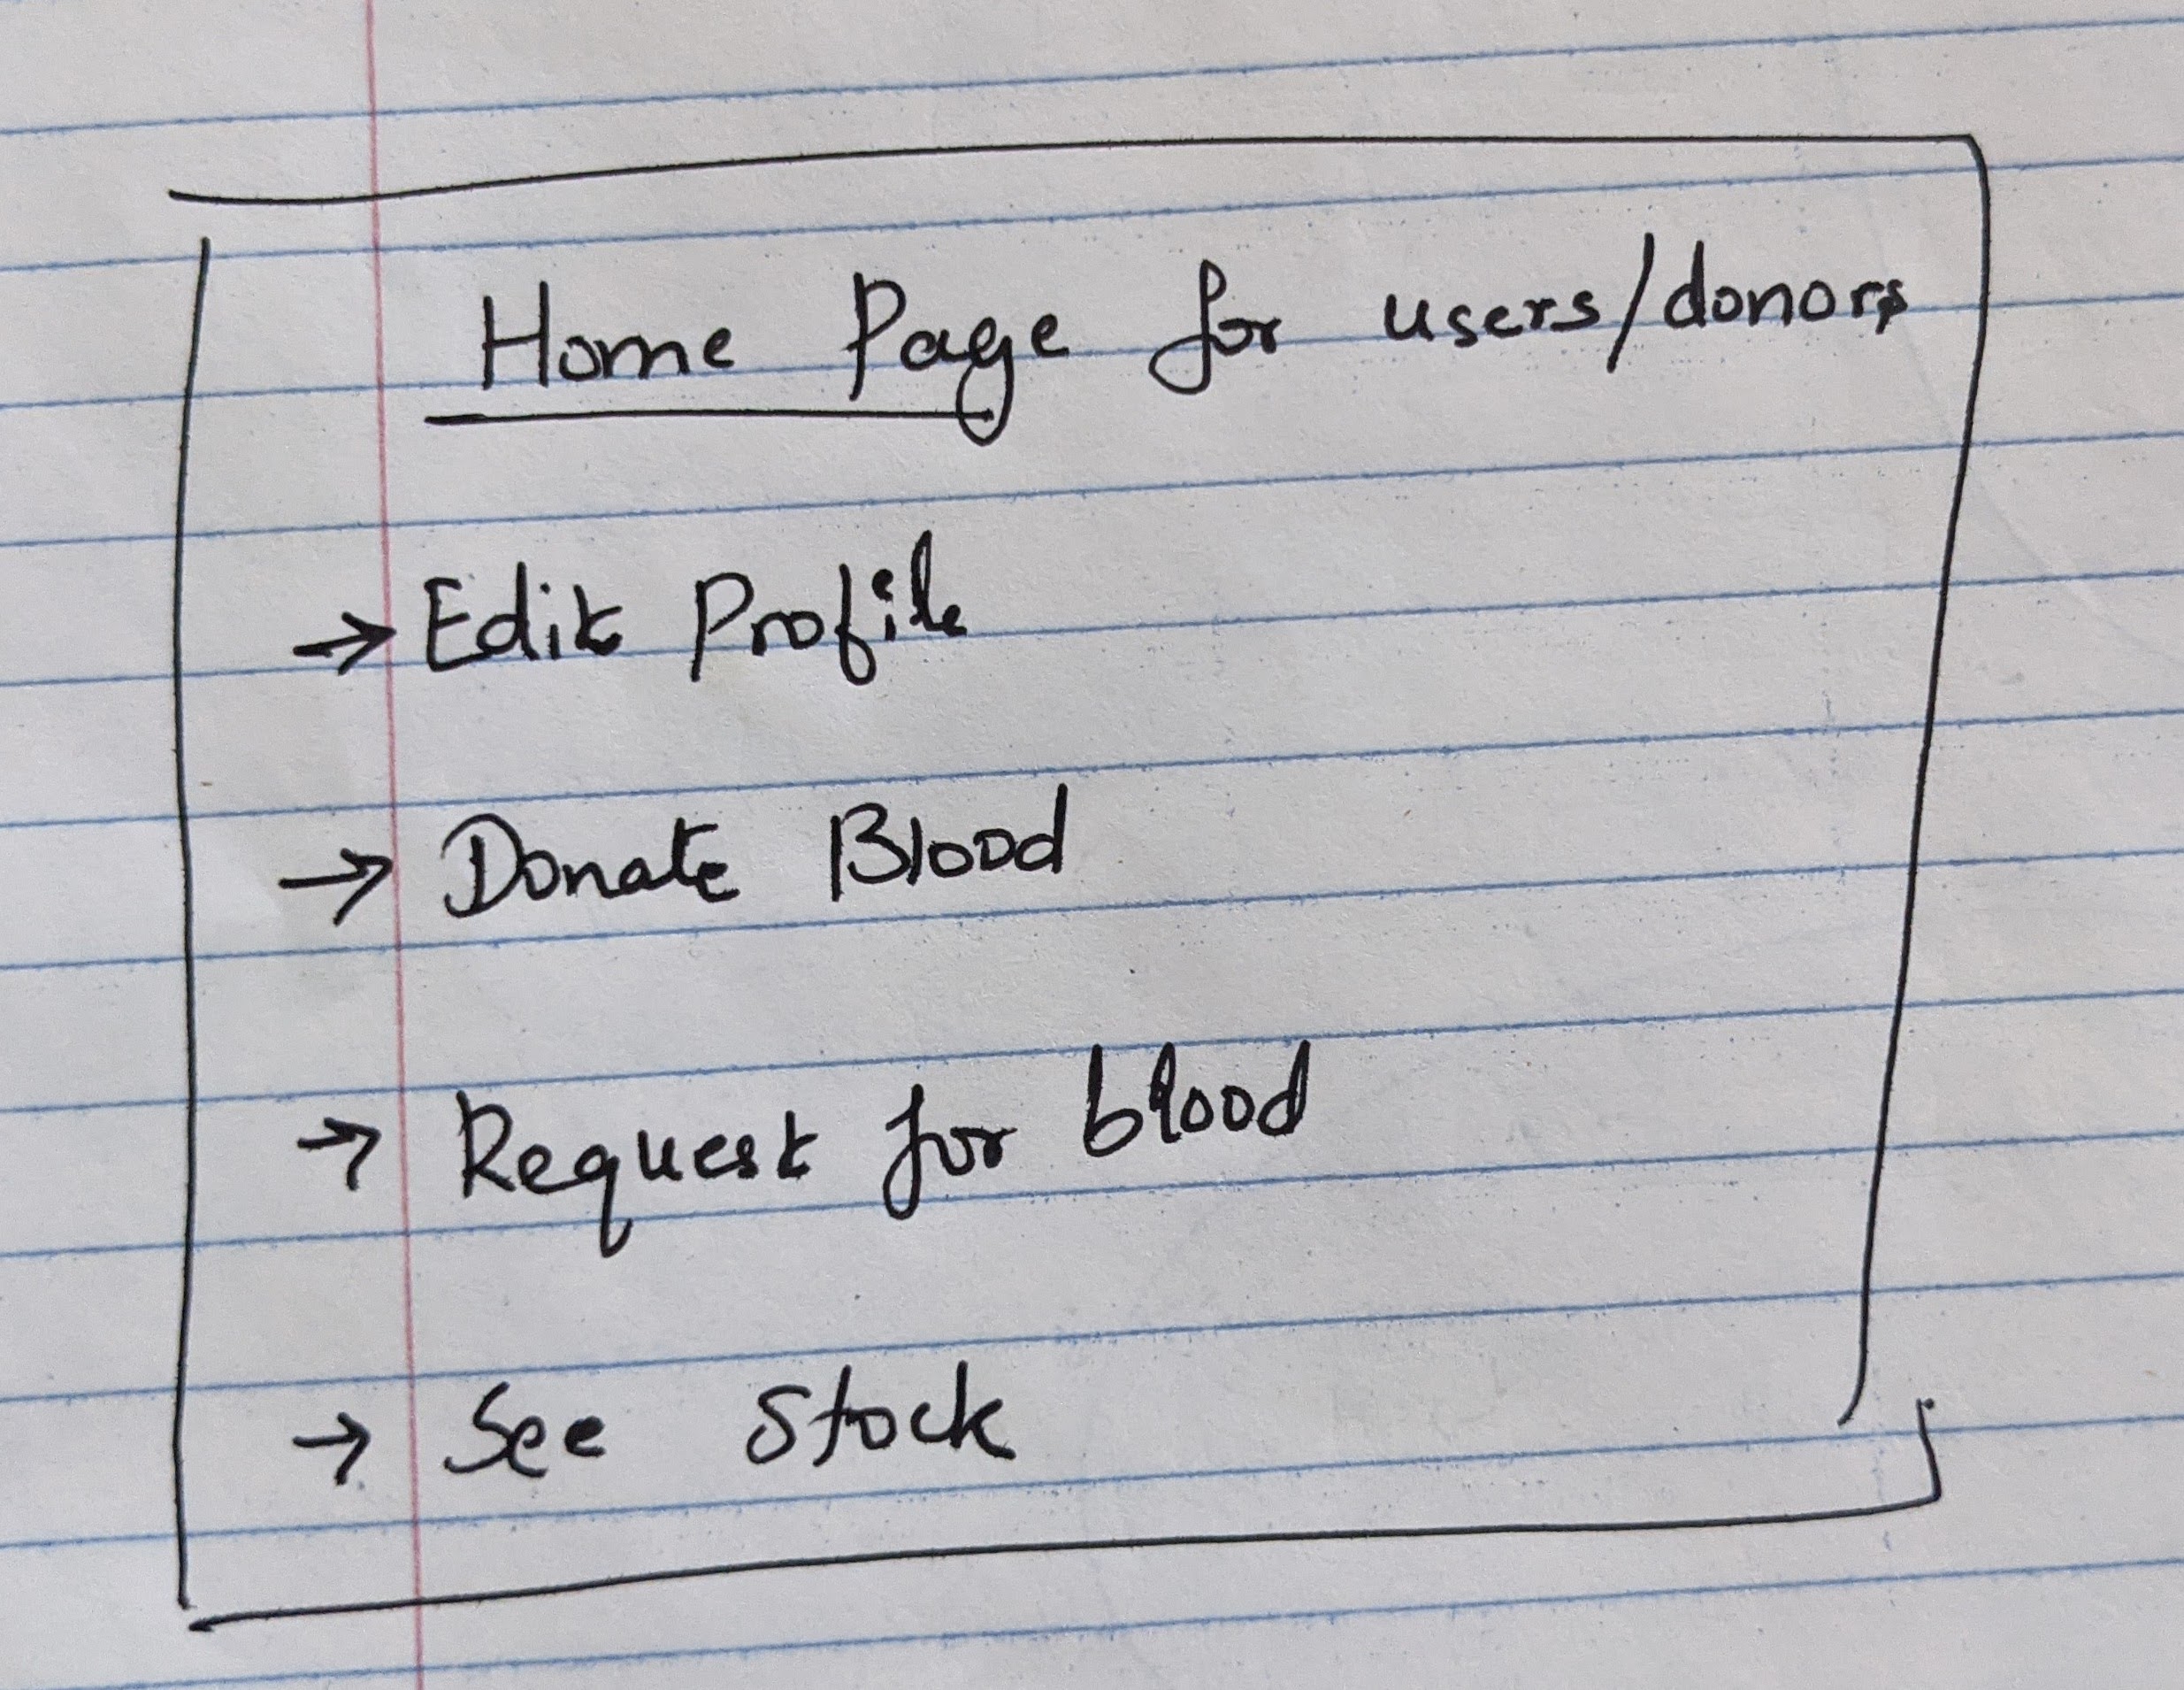 Home Page for users/donors
→ Edit Profile
→ Donate Blood
→ Request for blood
→ See Stock